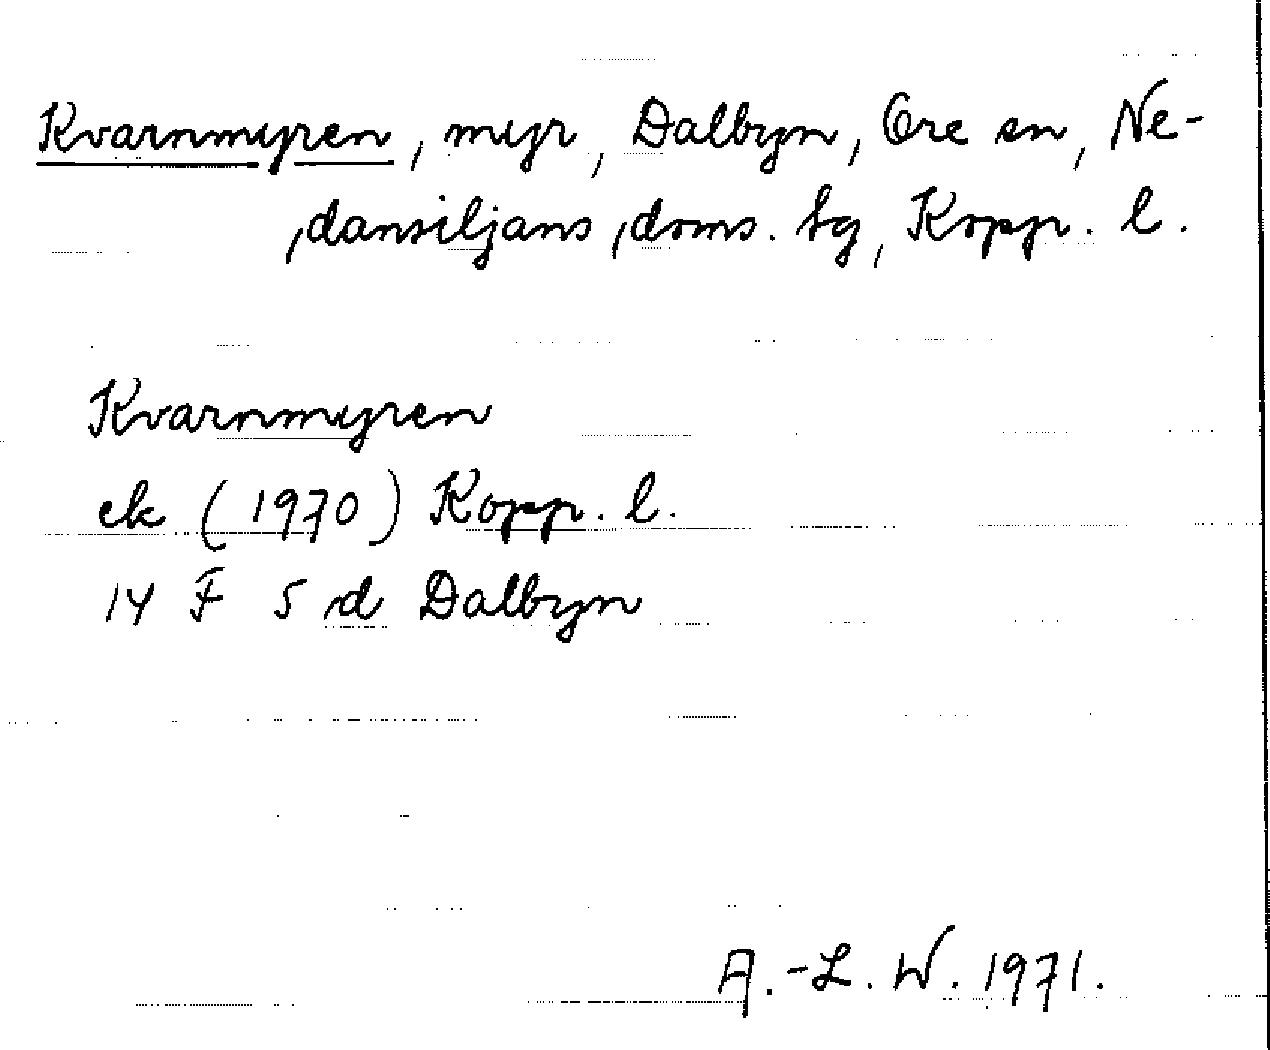 Kvarnmyren, myr, Dalbyn, Ore sn, Ne-
dansiljans doms. tg, Kopp. l.
Kvarnmyren
ek (1970) Kopp. l.
14 F 5 d Dalbyn
A.-L. W. 1971.